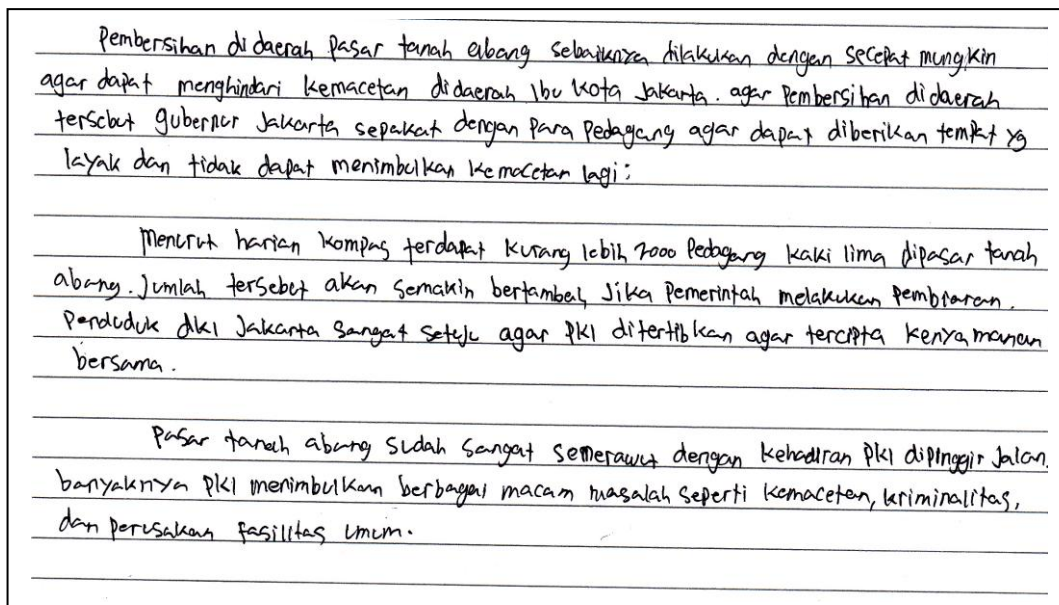 Pembersihan di daerah Pasar tanah abang sebaiknya dilakukan dengan secepat mungkin
agar dapat menghindari kemacetan didaerah Ibu kota Jakarta. agar Pembersihan didaerah
tersebut gubernur Jakarta sepakat dengan Para Pedagang agar dapat diberikan tempat yg
layak dan tidak dapat menimbulkan kemacetan lagi:
Menurut harian kompas terdapat kurang lebih 2000 Pedagang kaki lima dipasar tanah
abang. Jumlah tersebut akan semakin bertambah Jika Pemerintah melakukan Pembiaran.
Penduduk dki Jakarta sangat setuju agar PKl ditertibkan agar tercipta kenyamanan
bersama.
Pasar tanah abang sudah sangat semerawut dengan kehadiran PKl dipinggir Jalan.
banyaknya PKl menimbulkan berbagai macam masalah seperti kemacetan, kriminalitas,
dan perusakan fasilitas umum.